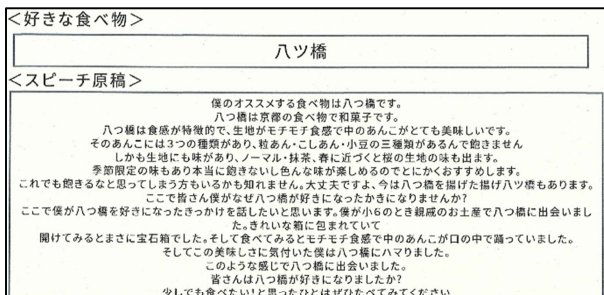 ＜好きな食べ物＞
八ツ橋
＜スピーチ原稿＞
僕のオススメする食べ物は八つ橋です。
八つ橋は京都の食べ物で和菓子です。
八つ橋は食感が特徴的で、生地がモチモチ食感で中のあんこがとても美味しいです。
そのあんこには３つの種類があり、粒あん・こしあん・小豆の三種類があるんで飽きません
しかも生地にも味があり、ノーマル・抹茶、春に近づくと桜の生地の味も出ます。
季節限定の味もあり本当に飽きないし色んな味が楽しめるのでとにかくおすすめします。
これでも飽きるなと思ってしまう方もいるかも知れません。大丈夫ですよ、今は八つ橋を揚げた揚げ八ツ橋もあります。
ここで皆さん僕がなぜ八つ橋が好きになったかきになりませんか?
ここで僕が八つ橋を好きになったきっかけを話したいと思います。僕が小6のとき親戚のお土産で八つ橋に出会いまし
た。きれいな箱に包まれていて
開けてみるとまさに宝石箱でした。そして食べてみるとモチモチ食感で中のあんこが口の中で踊っていました。
そしてこの美味しさに気付いた僕は八つ橋にハマりました。
このような感じで八つ橋に出会いました。
皆さんは八つ橋が好きになりましたか?
少しでも食べたい!と思ったひとはぜひたべてみてください